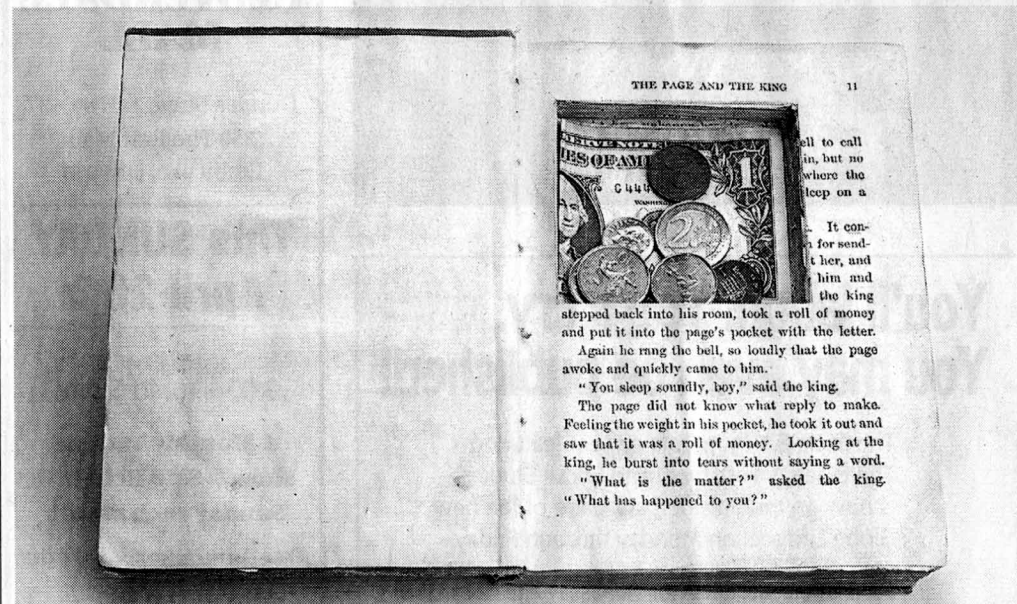 THE PAGE AND THE KING 11
ell to call
in, but no
where the
leep on a
It con-
for send-
t her, and
him and
the king
stepped back into his room, took a roll of money
and put it into the page's pocket with the letter.
Again he rang the bell, so loudly that the page
awoke and quickly came to him.
"You sleep soundly, boy," said the king.
The page did not know what reply to make.
Feeling the weight in his pocket, he took it out and
saw that it was a roll of money. Looking at the
king, he burst into tears without saying a word.
"What is the matter?" asked the king.
"What has happened to you?"
IES OF AM
1
C444
WASHIN
2